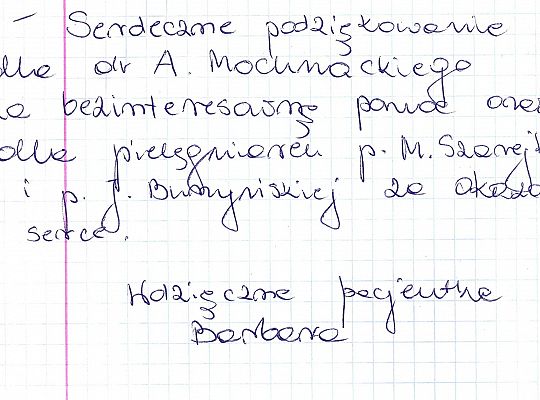 - Serdeczne podziękowanie
dla dr A. Mochnackiego
za bezinteresowną pomoc oraz
dla pielęgniarek p. M. Szarej
i p. J. Burzyńskiej za okaza
serce.
Wdzięczna pacjentka
Barbara